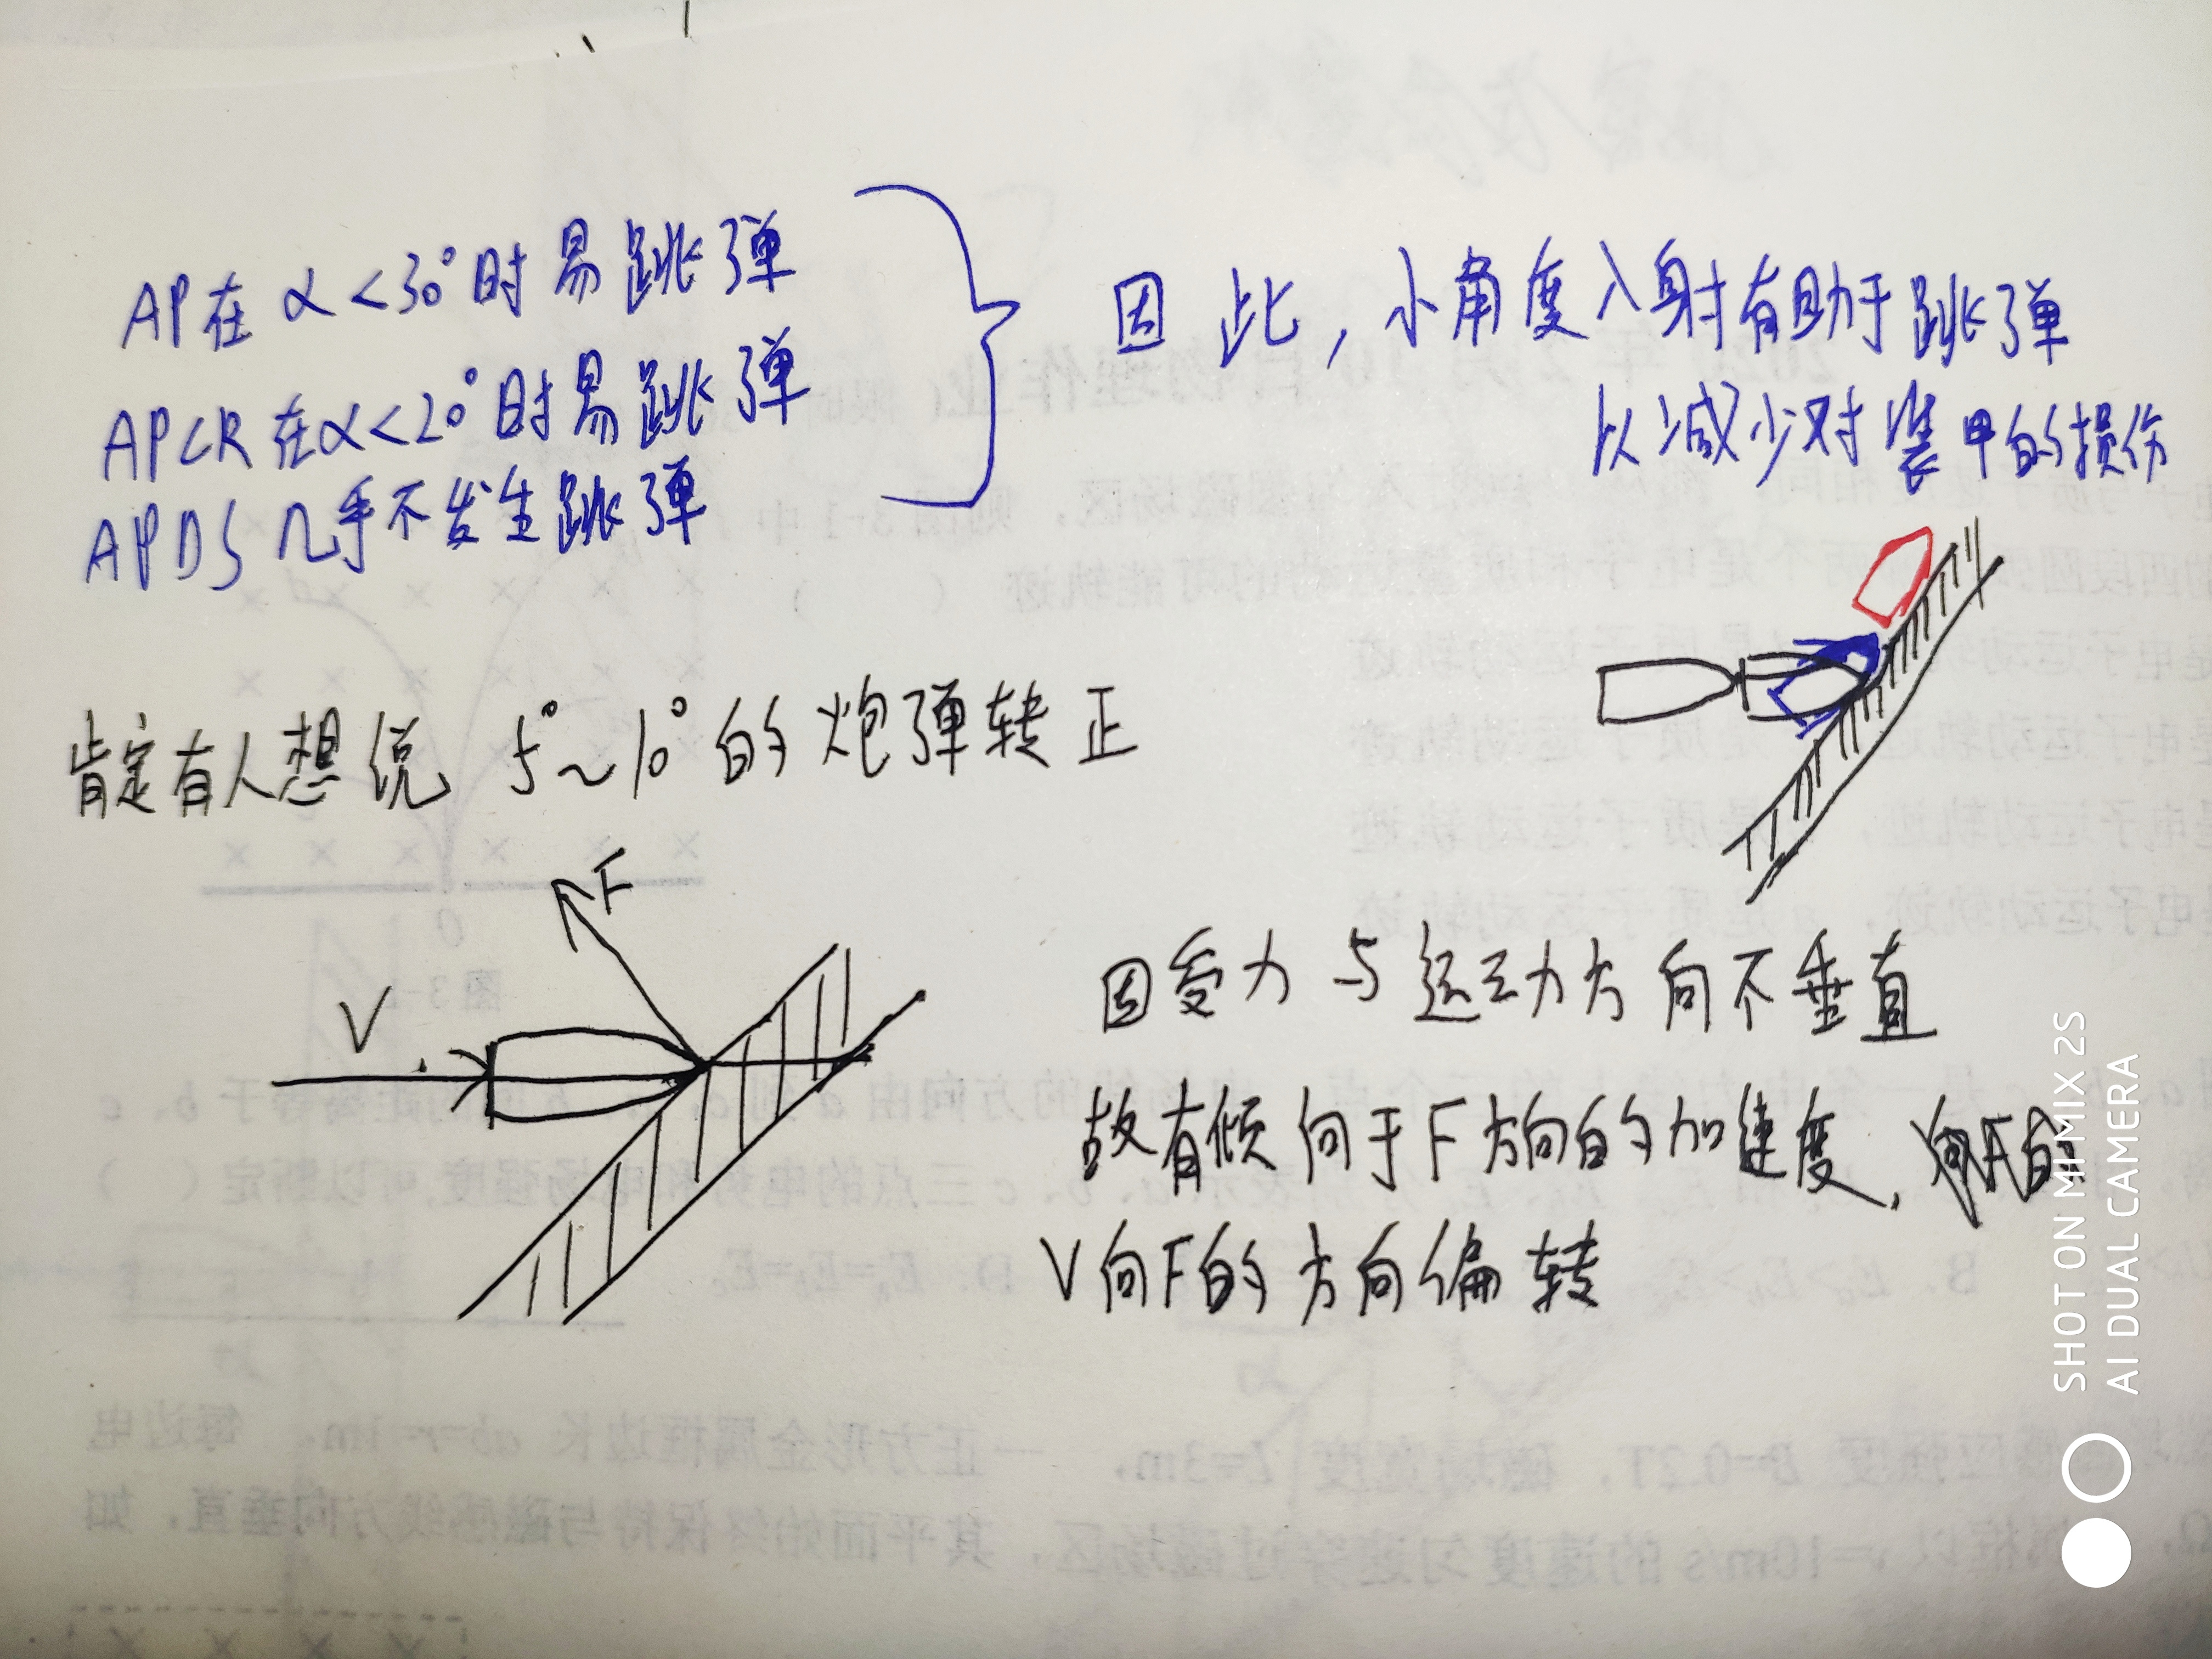 AP在 α<30°时易跳弹
APCR在α<20°时易跳弹
APDS几乎不发生跳弹
因此，小角度入射有助于跳弹
以减少对装甲的损伤
肯定有人想说 5°~10°的炮弹转正
F
V
因受力与运动方向不垂直
故有倾向于F方向的加速度，
V向F的方向偏转
SHOT ON MI MIX 2S
AI DUAL CAMERA